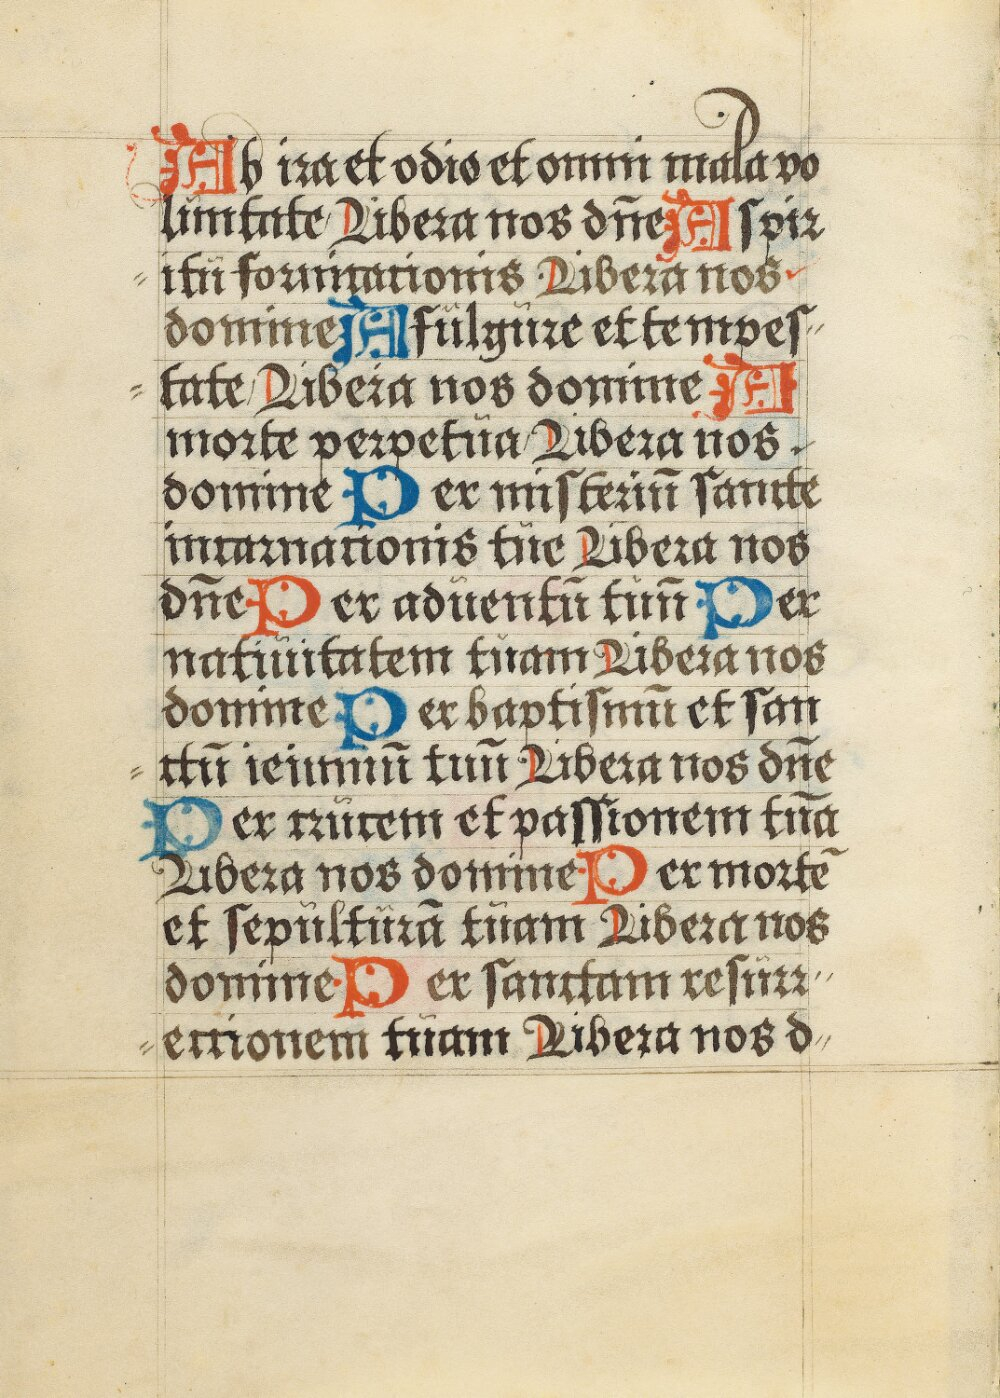 Ab ira et odio et omni mala vo
luntate Libera nos dñe A spir
itu fornicationis Libera nos
domine A fulgure et tempes
tate Libera nos domine A
morte perpetua Libera nos
domine Per misteriū sancte
incarnationis tue Libera nos
dñe Per aduentū tuū Per
natiuitatem tuam Libera nos
domine Per baptismū et san
ctū ieiuniuū tuū Libera nos dñe
Per crucem et passionem tuā
Libera nos domine Per mortē
et sepulturā tuam Libera nos
domine Per sanctam resurr
eccionem tuam Libera nos d